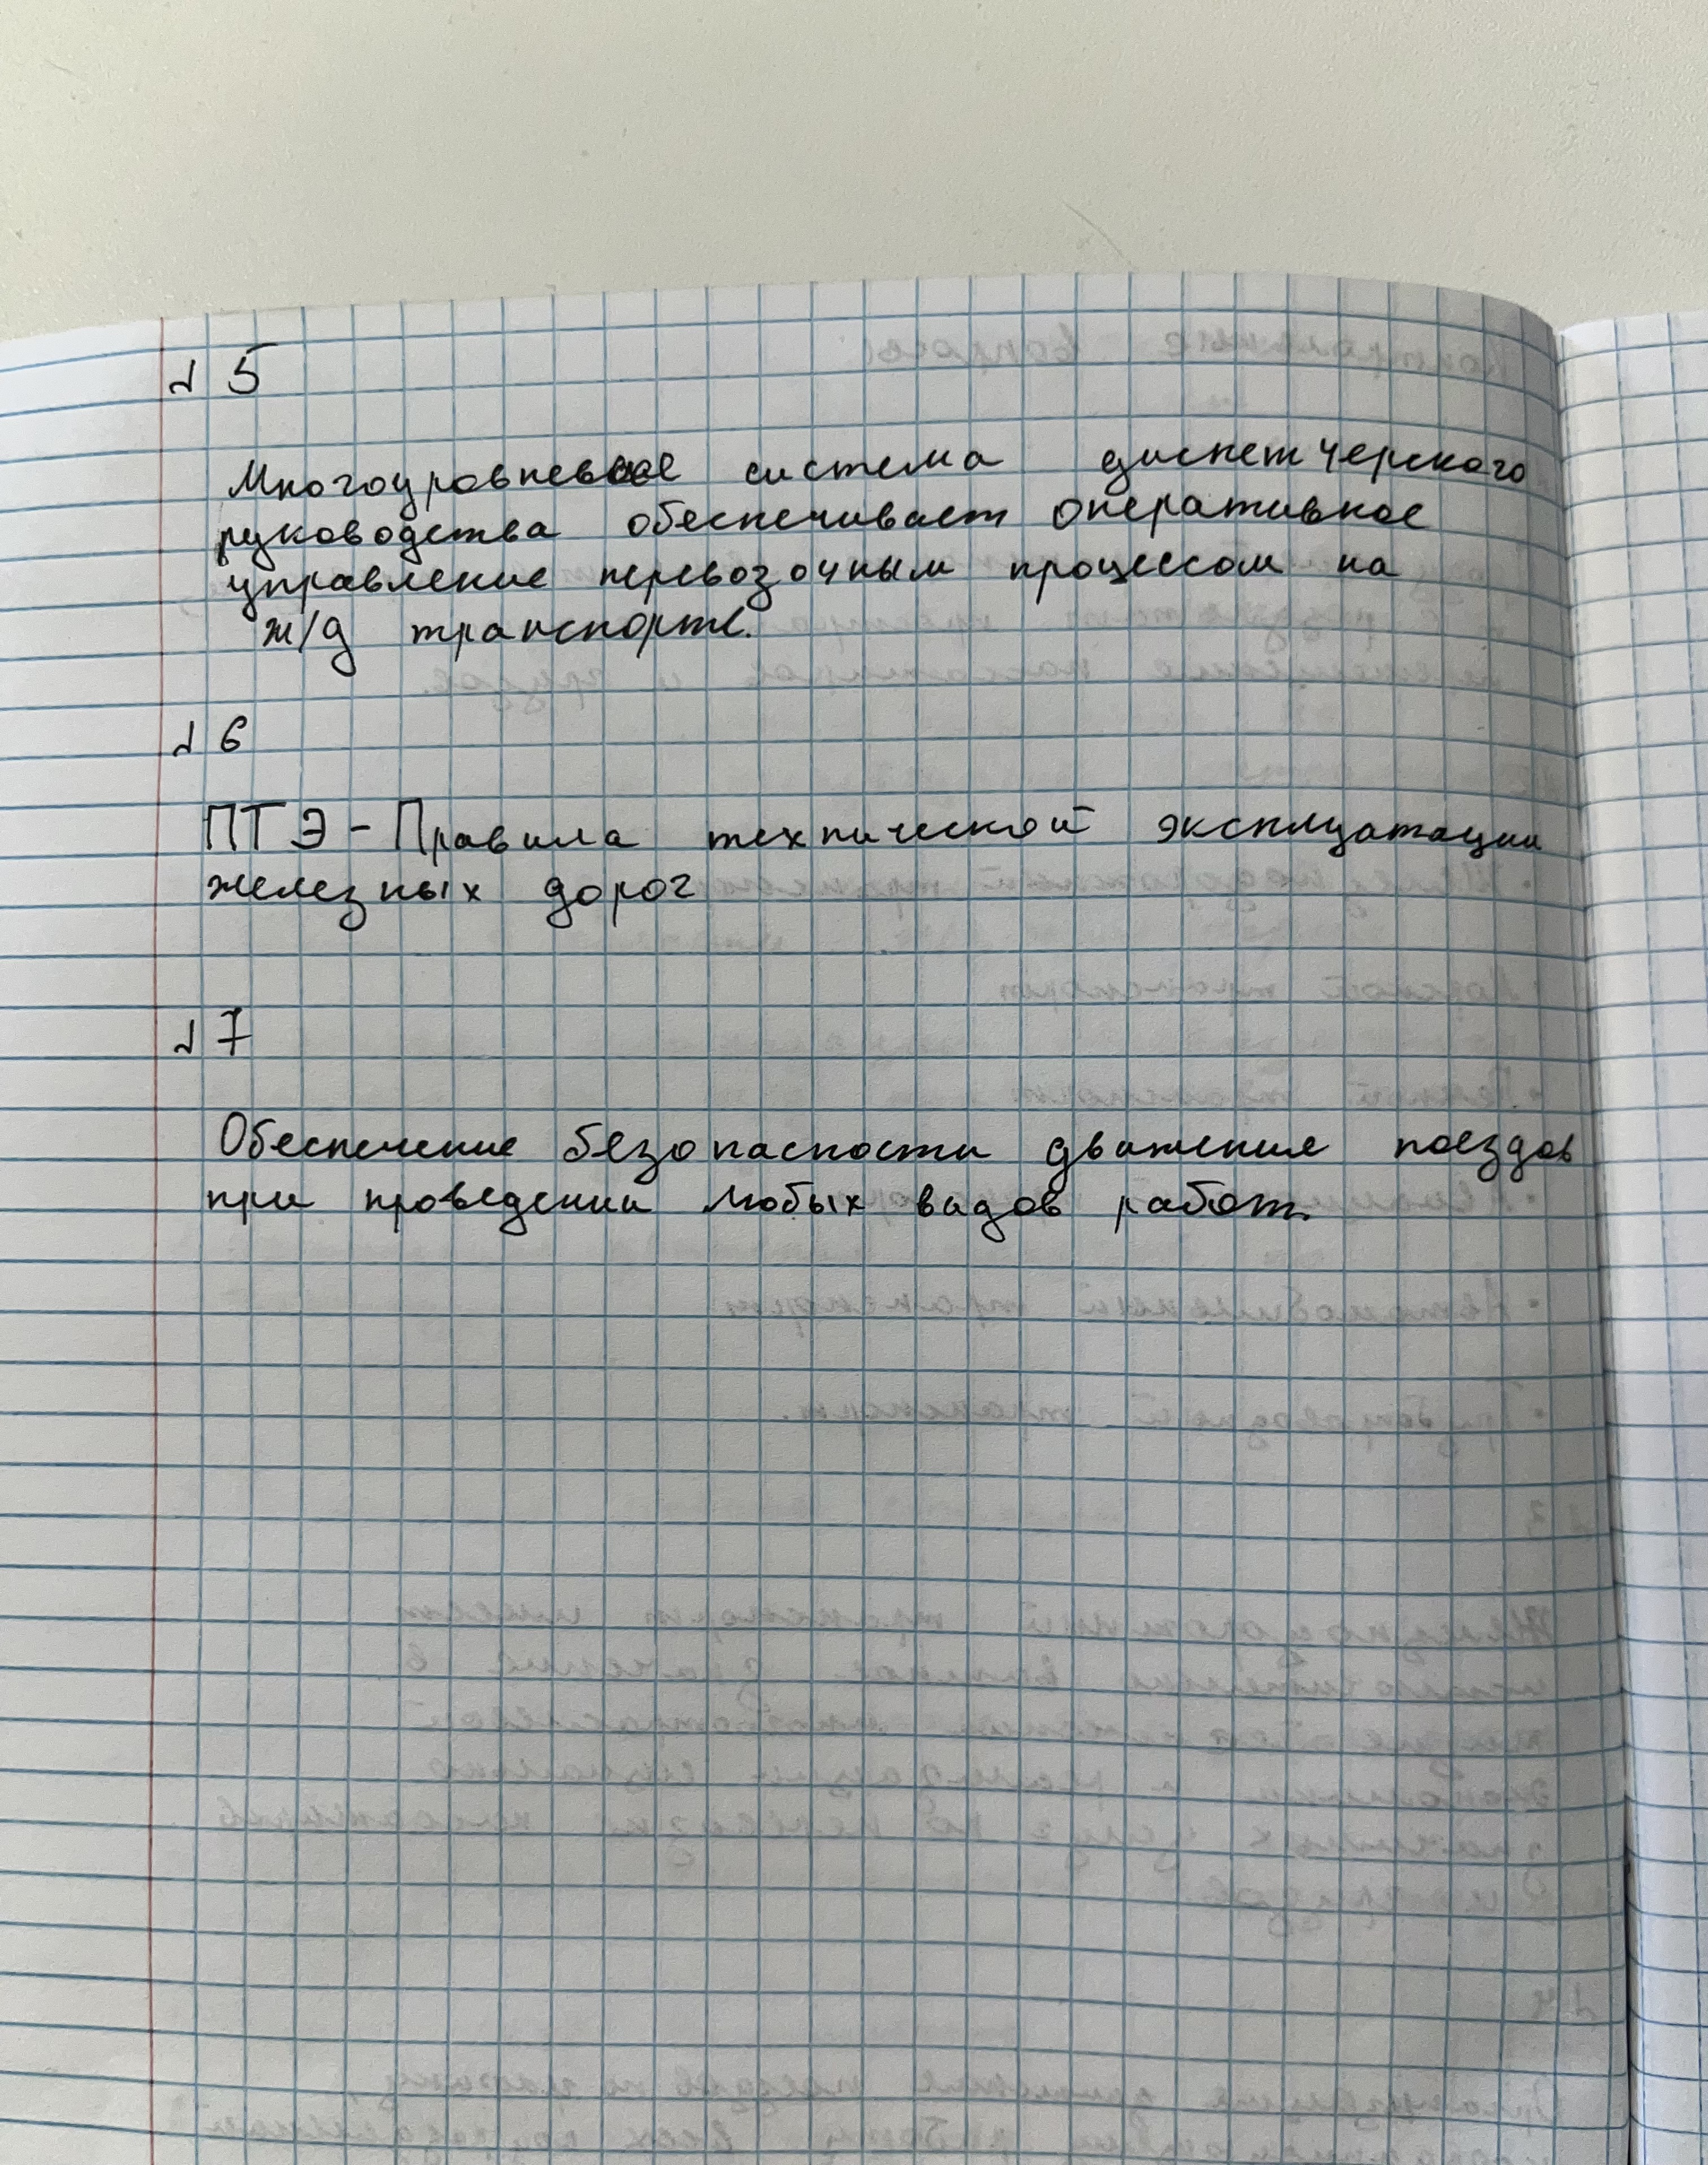 № 5
Многоуровневое система диспетчерского
руководства обеспечивает оперативное
управление перевозочным процессом на
ж/д транспорте.
№ 6
ПТЭ - Правила технической эксплуатации
железных дорог
№ 7
Обеспечение безопасности движения поездов
при проведении любых видов работ.